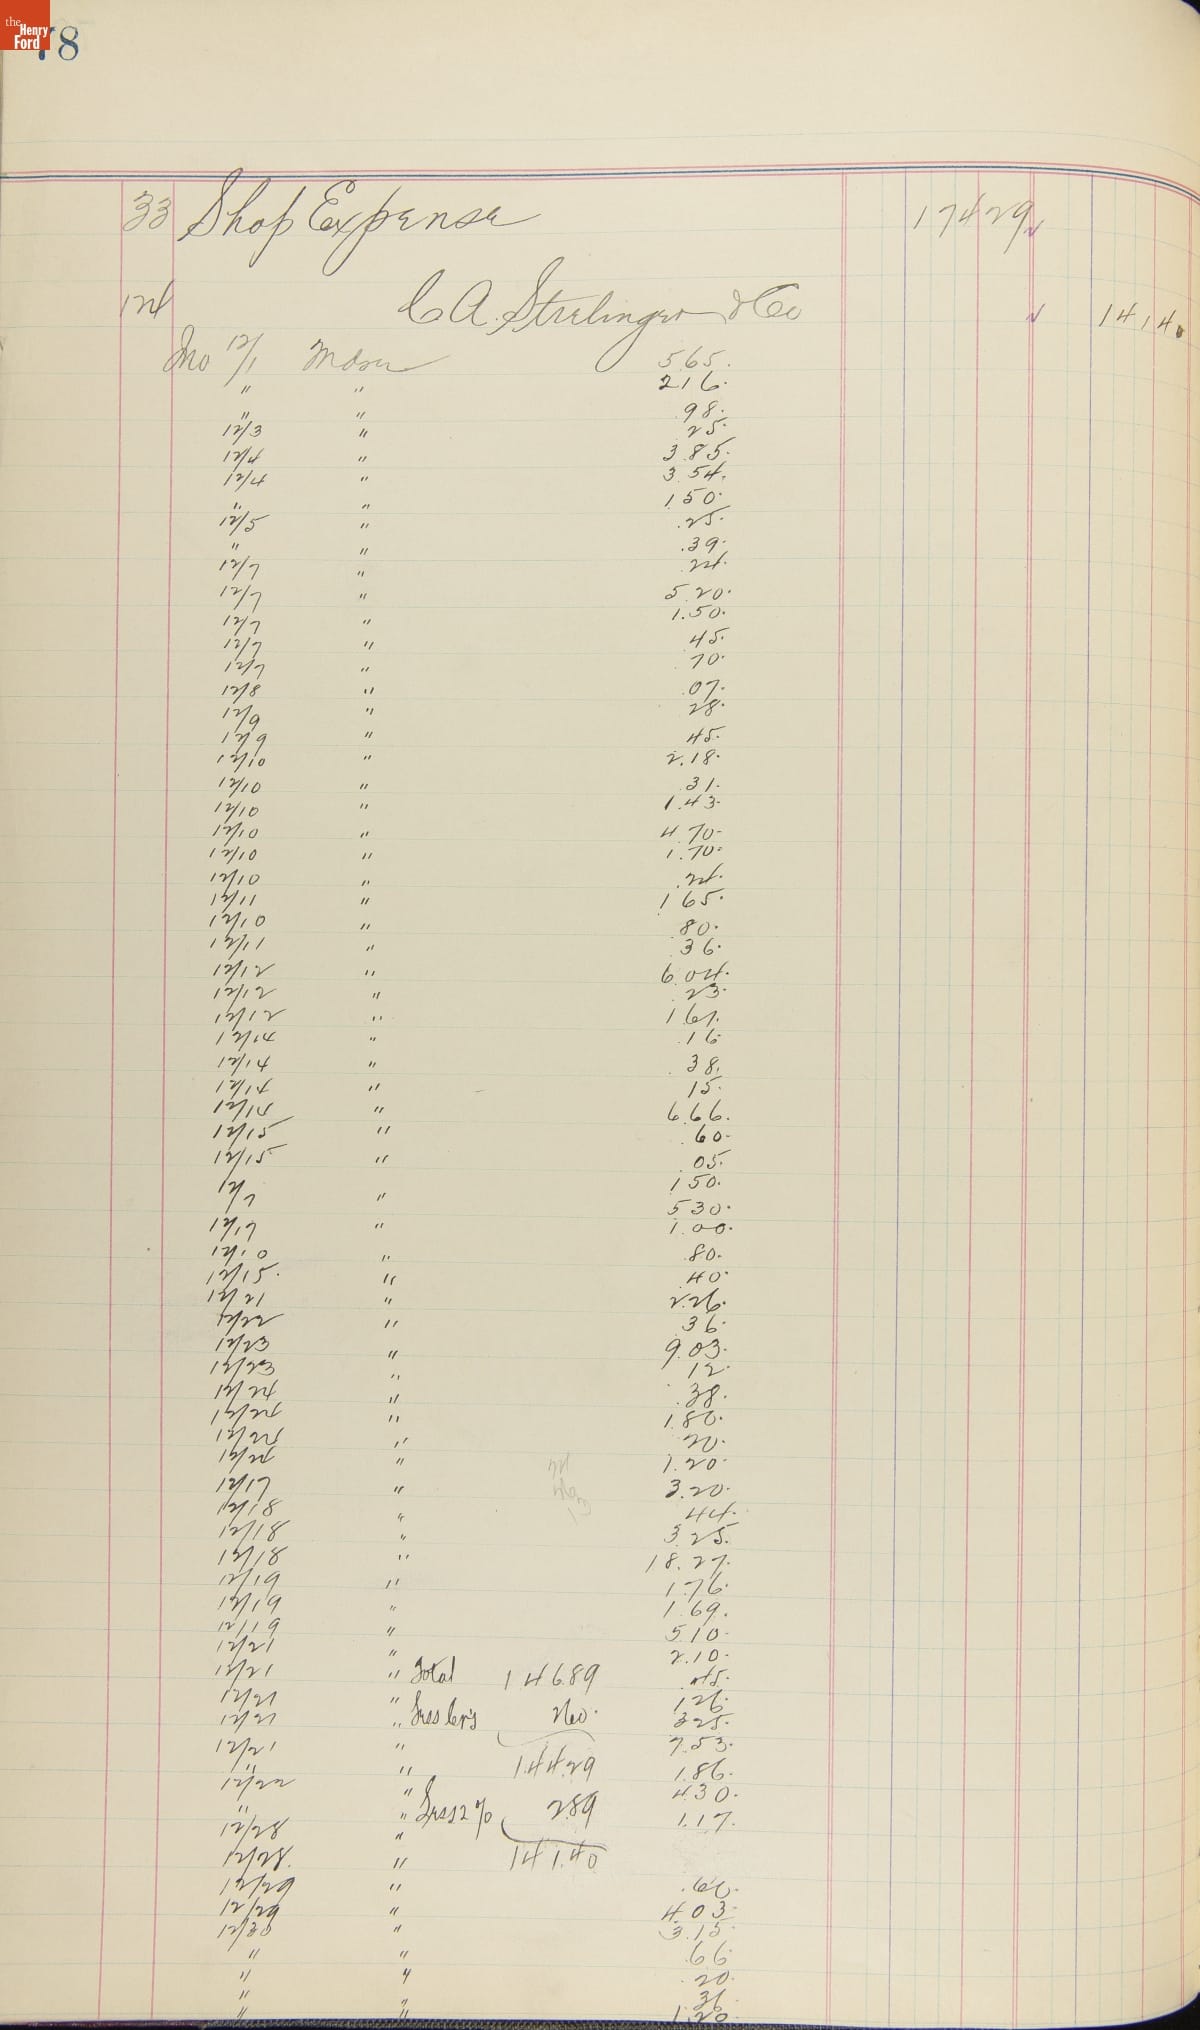 the Henry Ford
78
33 Shop Expense 174 29
124 C A. Strelinger & Co 141 40
Ino 12/1 Mdse 5.65.
" " 2 16.
" " .98.
12/3 " .25.
12/4 " 3.85.
12/4 " 3.54.
" " 1.50.
12/5 " .25.
" " .39.
12/7 " .24.
12/7 " 5.20.
12/7 " 1.50.
12/7 " 45.
12/7 " 70.
12/8 " .07.
12/9 " 28.
12/9 " 45.
12/10 " 2.18.
12/10 " .31.
12/10 " 1.43.
12/10 " 4.70-
12/10 " 1.70-
12/10 " .24.
12/11 " 1 65.
12/10 " .80.
12/11 " .36.
12/12 " 6.04.
12/12 " .23.
12/12 " 1 67.
12/14 " .16
12/14 " .38.
12/14 " 15.
12/14 " 6.66.
12/15 " .60-
12/15 " .05.
12/7 " 1 50.
5 30.
12/17 " 1.00.
12/10 " .80.
12/15. " 40.
12/21 " 2.26.
12/22 " 36.
12/23 " 9.03.
12/23 " 12.
12/24 " .38.
12/24 " 1.80.
12/24 " 20.
12/24 " 1.20.
12/17 " 3.20.
12/18 " 44.
12/18 " 3.25.
12/18 " 18.27.
12/19 " 1.76.
12/19 " 1.69.
12/19 " 5.10.
12/21 " 2.10.
12/21 " Total 146.89 .45.
12/21 " 1.26.
12/21 " 2.60. 3.25.
12/21 " 7.53.
" " 144.29 1.86.
12/22 " 4.30.
" " Less 2% 2.89 1.17.
12/28 "
12/28. " 141.40
12/29 " .60.
12/29 " 4.03.
12/30 " 3.15.
" " .66
" " .20.
" " 36
" " 1.20